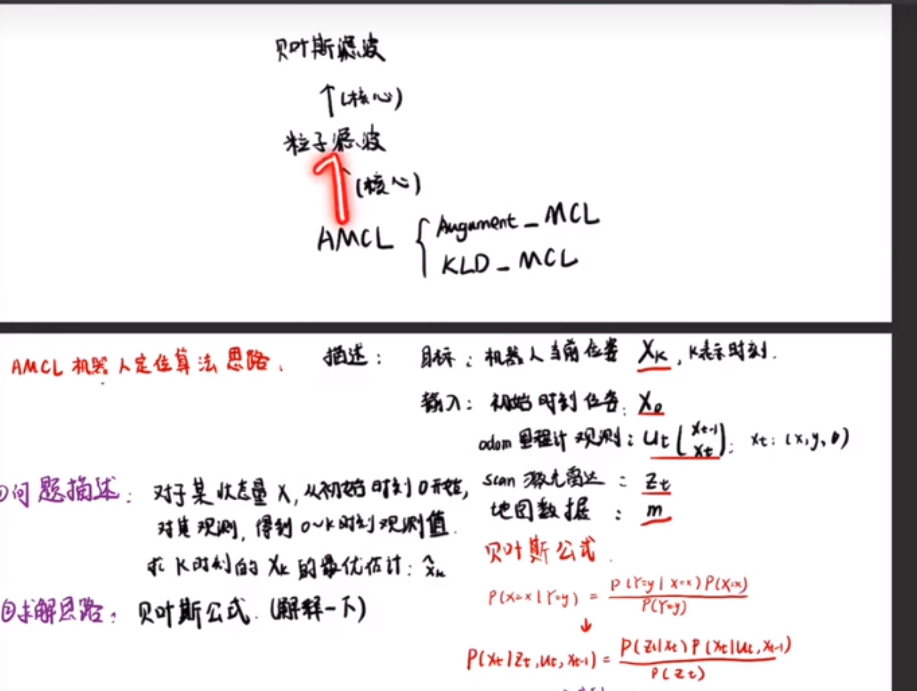 贝叶斯滤波
↑(核心)
粒子滤波
↑(核心)
AMCL { Augument_MCL
KLD_MCL
AMCL 机器人定位算法思路.
描述: 目标: 机器人当前位姿 Xk, K表示时刻.
输入: 初始时刻位姿: X0
odom里程计观测: Ut (Xt-1 Xt); Xt: (x, y, θ)
scan 激光雷达: Zt
地图数据: m
问题描述: 对于某状态量X, 从初始时刻0开始,
对其观测, 得到0~K时刻观测值.
求K时刻的Xk的最优估计: x̂k
②求解思路: 贝叶斯公式. (解释一下)
贝叶斯公式.
P(X=x|Y=y) = P(Y=y|X=x)P(X=x) / P(Y=y)
↓
P(Xt|Zt,Ut,Xt-1) = P(Zt|Xt)P(Xt|Ut,Xt-1) / P(Zt)